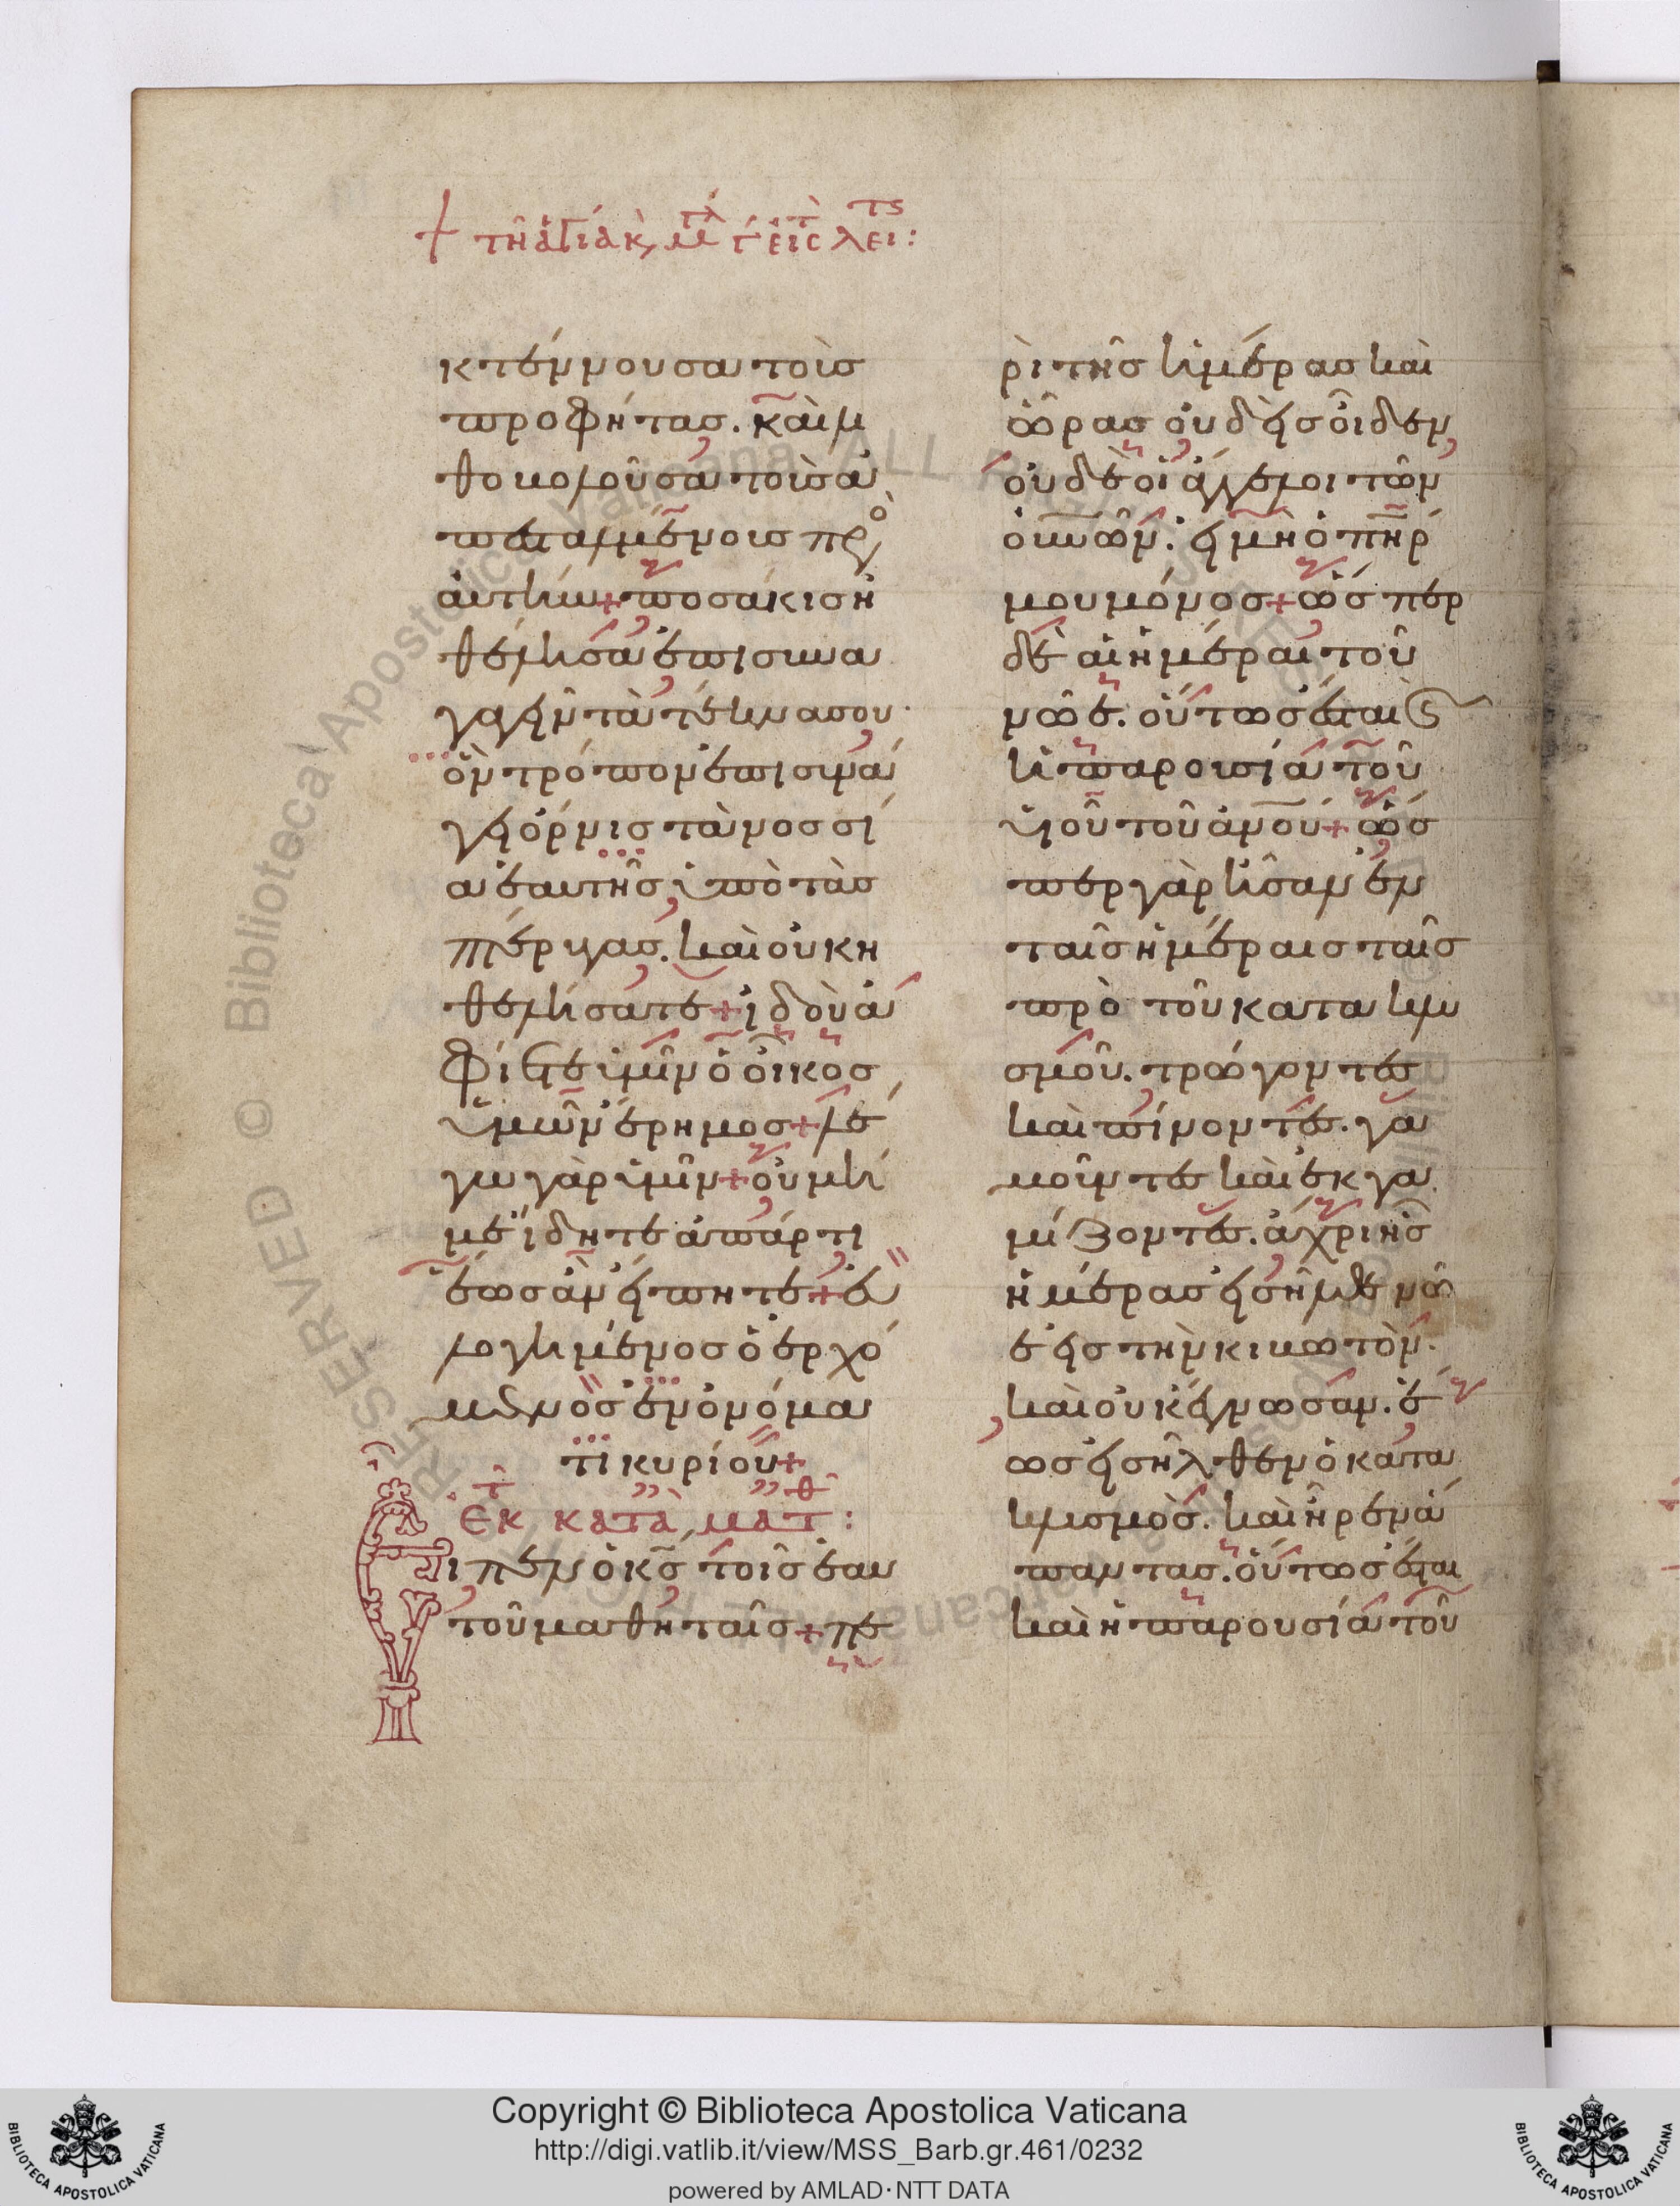 + τῆ ἁγία κ, μ γ εἰς λει:
κτέννουσα τοὺσ
προφήτασ. καὶ λι
θοβολοῦσα τοὺσ ἀ
πεσταλμένουσ πρὸ
αὐτήν + ποσάκισ ἠ
θέλησα ἐπισυνα
γαγεῖν τὰ τέκνα σου.
ὃν τρόπον ἐπισυνά
γει ὄρνισ τὰ νοσσί
α ἑαυτῆσ ὑπὸ τὰσ
πτέρυγασ. καὶ οὐκ ἠ
θελήσατε + ἰδοὺ ἀ
φίεται ὑμῖν ὁ οἶκοσ
ὑμῶν ἔρημοσ + λέ
γω γὰρ ὑμῖν + οὐ μή
με ἴδητε ἀπάρτι
ἕωσ ἂν εἴπητε + εὐ
λογημένοσ ὁ ἐρχό
μενοσ ἐν ὀνόμα
τι κυρίου +
ἐκ κατὰ ματθ:
Εἶπεν ὁ κσ τοῖσ ἑαυ
τοῦ μαθηταῖσ + πε
ρὶ τῆσ ἡμέρασ καὶ
ὥρασ οὐδεὶσ οἶδεν
οὐδὲ οἱ ἄγγελοι τῶν
οὐνῶν. εἰ μὴ ὁ πηρ
μου μόνοσ + ὥσπερ
δὲ αἱ ἡμέραι τοῦ
νῶε. οὕτωσ ἔσται ϛ
ἡ παρουσία τοῦ
υἱοῦ τοῦ ἀνου + ὥσ
περ γὰρ ἦσαν ἐν
ταῖσ ἡμέραισ ταῖσ
πρὸ τοῦ κατακλυ
σμοῦ. τρώγοντεσ
καὶ πίνοντεσ. γα
μοῦντεσ καὶ ἐκγα
μίζοντεσ. ἄχρι ἧσ
ἡμέρασ εἰσῆλθε νῶ
ε εἰσ τὴν κιβωτόν.
καὶ οὐκ ἔγνωσαν. ἕ
ωσ εἰσῆλθεν ὁ κατα
κλυσμὸσ. καὶ ἦρεν ἅ
παντασ. οὕτωσ ἔσται
καὶ ἡ παρουσία τοῦ
Copyright © Biblioteca Apostolica Vaticana
http://digi.vatlib.it/view/MSS_Barb.gr.461/0232
powered by AMLAD·NTT DATA